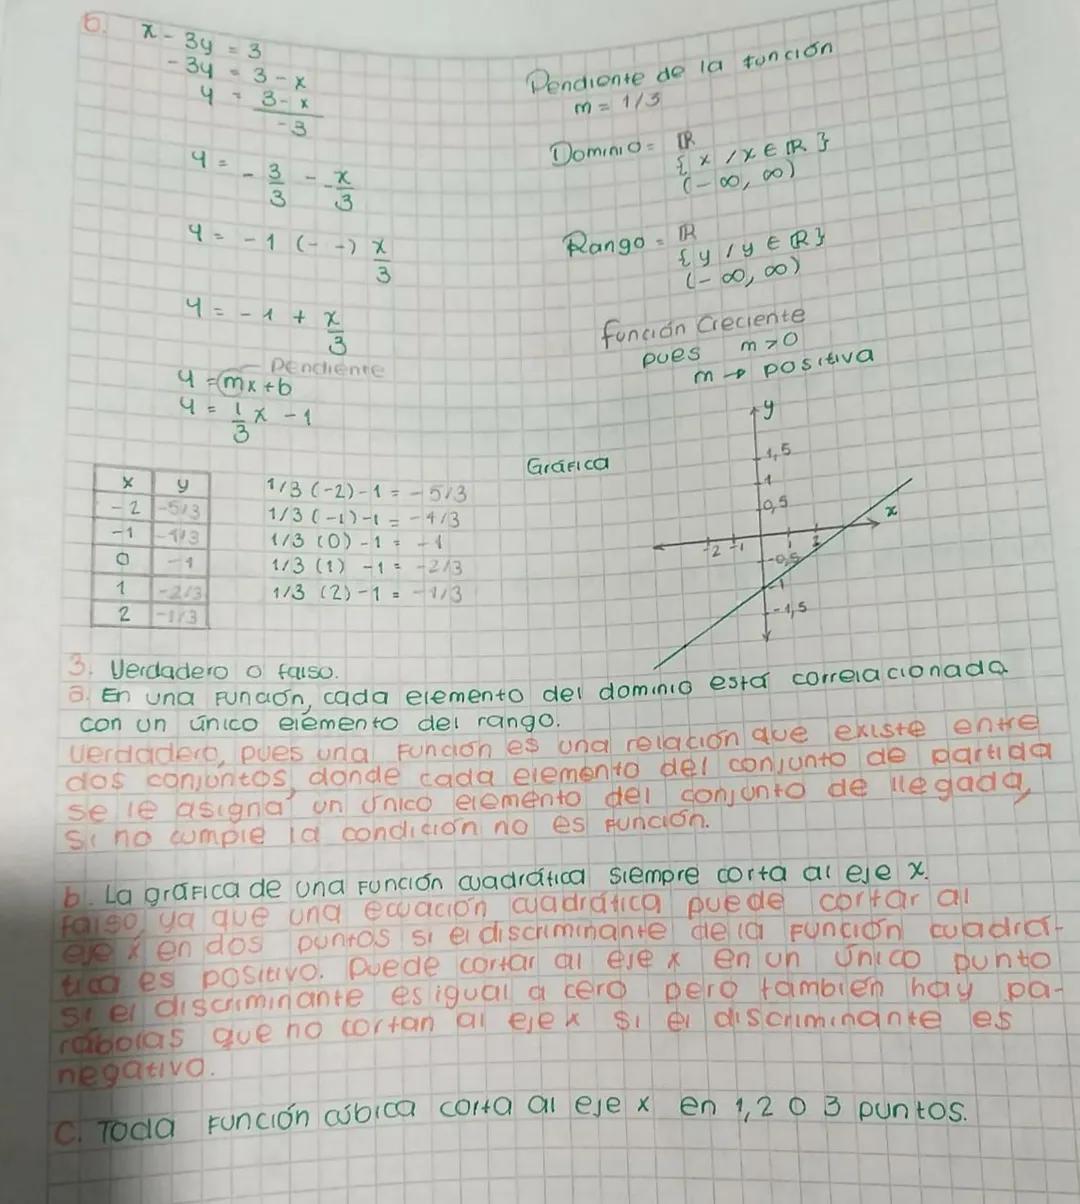 6.
x - 3y = 3
-3y = 3 - x
y = 3 - x
-3
y = - 3/3 - x/-3
y = -1 (- -) x/3
y = -1 + x/3
Pendiente
y = mx+b
y = 1/3 x - 1
Pendiente de la función
m = 1/3
Dominio = ℝ
{x / x ∈ ℝ}
(-∞, ∞)
Rango = ℝ
{y / y ∈ ℝ}
(-∞, ∞)
función Creciente
pues m>0
m → positiva
x y
-2 -5/3
-1 -4/3
0 -1
1 -2/3
2 -1/3
1/3 (-2)-1 = -5/3
1/3 (-1)-1 = -4/3
1/3 (0)-1 = -1
1/3 (1) -1 = -2/3
1/3 (2)-1 = -1/3
Gráfica
y
1,5
1
0,5
x
-2 -1 1 2
-0,5
-1
-1,5
3. Verdadero o falso.
a. En una función, cada elemento del dominio está correlacionada
con un único elemento del rango.
Verdadero, pues una función es una relación que existe entre
dos conjuntos, donde cada elemento del conjunto de partida
se le asigna un único elemento del conjunto de llegada,
si no cumple la condición no es función.
b. La gráfica de una función cuadrática siempre corta al eje x.
falso, ya que una ecuación cuadrática puede cortar al
eje x en dos puntos si el discriminante de la función cuadrá-
tica es positivo. Puede cortar al eje x en un único punto
si el discriminante es igual a cero pero también hay pa-
rábolas que no cortan al eje x si el discriminante es
negativo.
C. Toda función cúbica corta al eje x en 1,2 o 3 puntos.